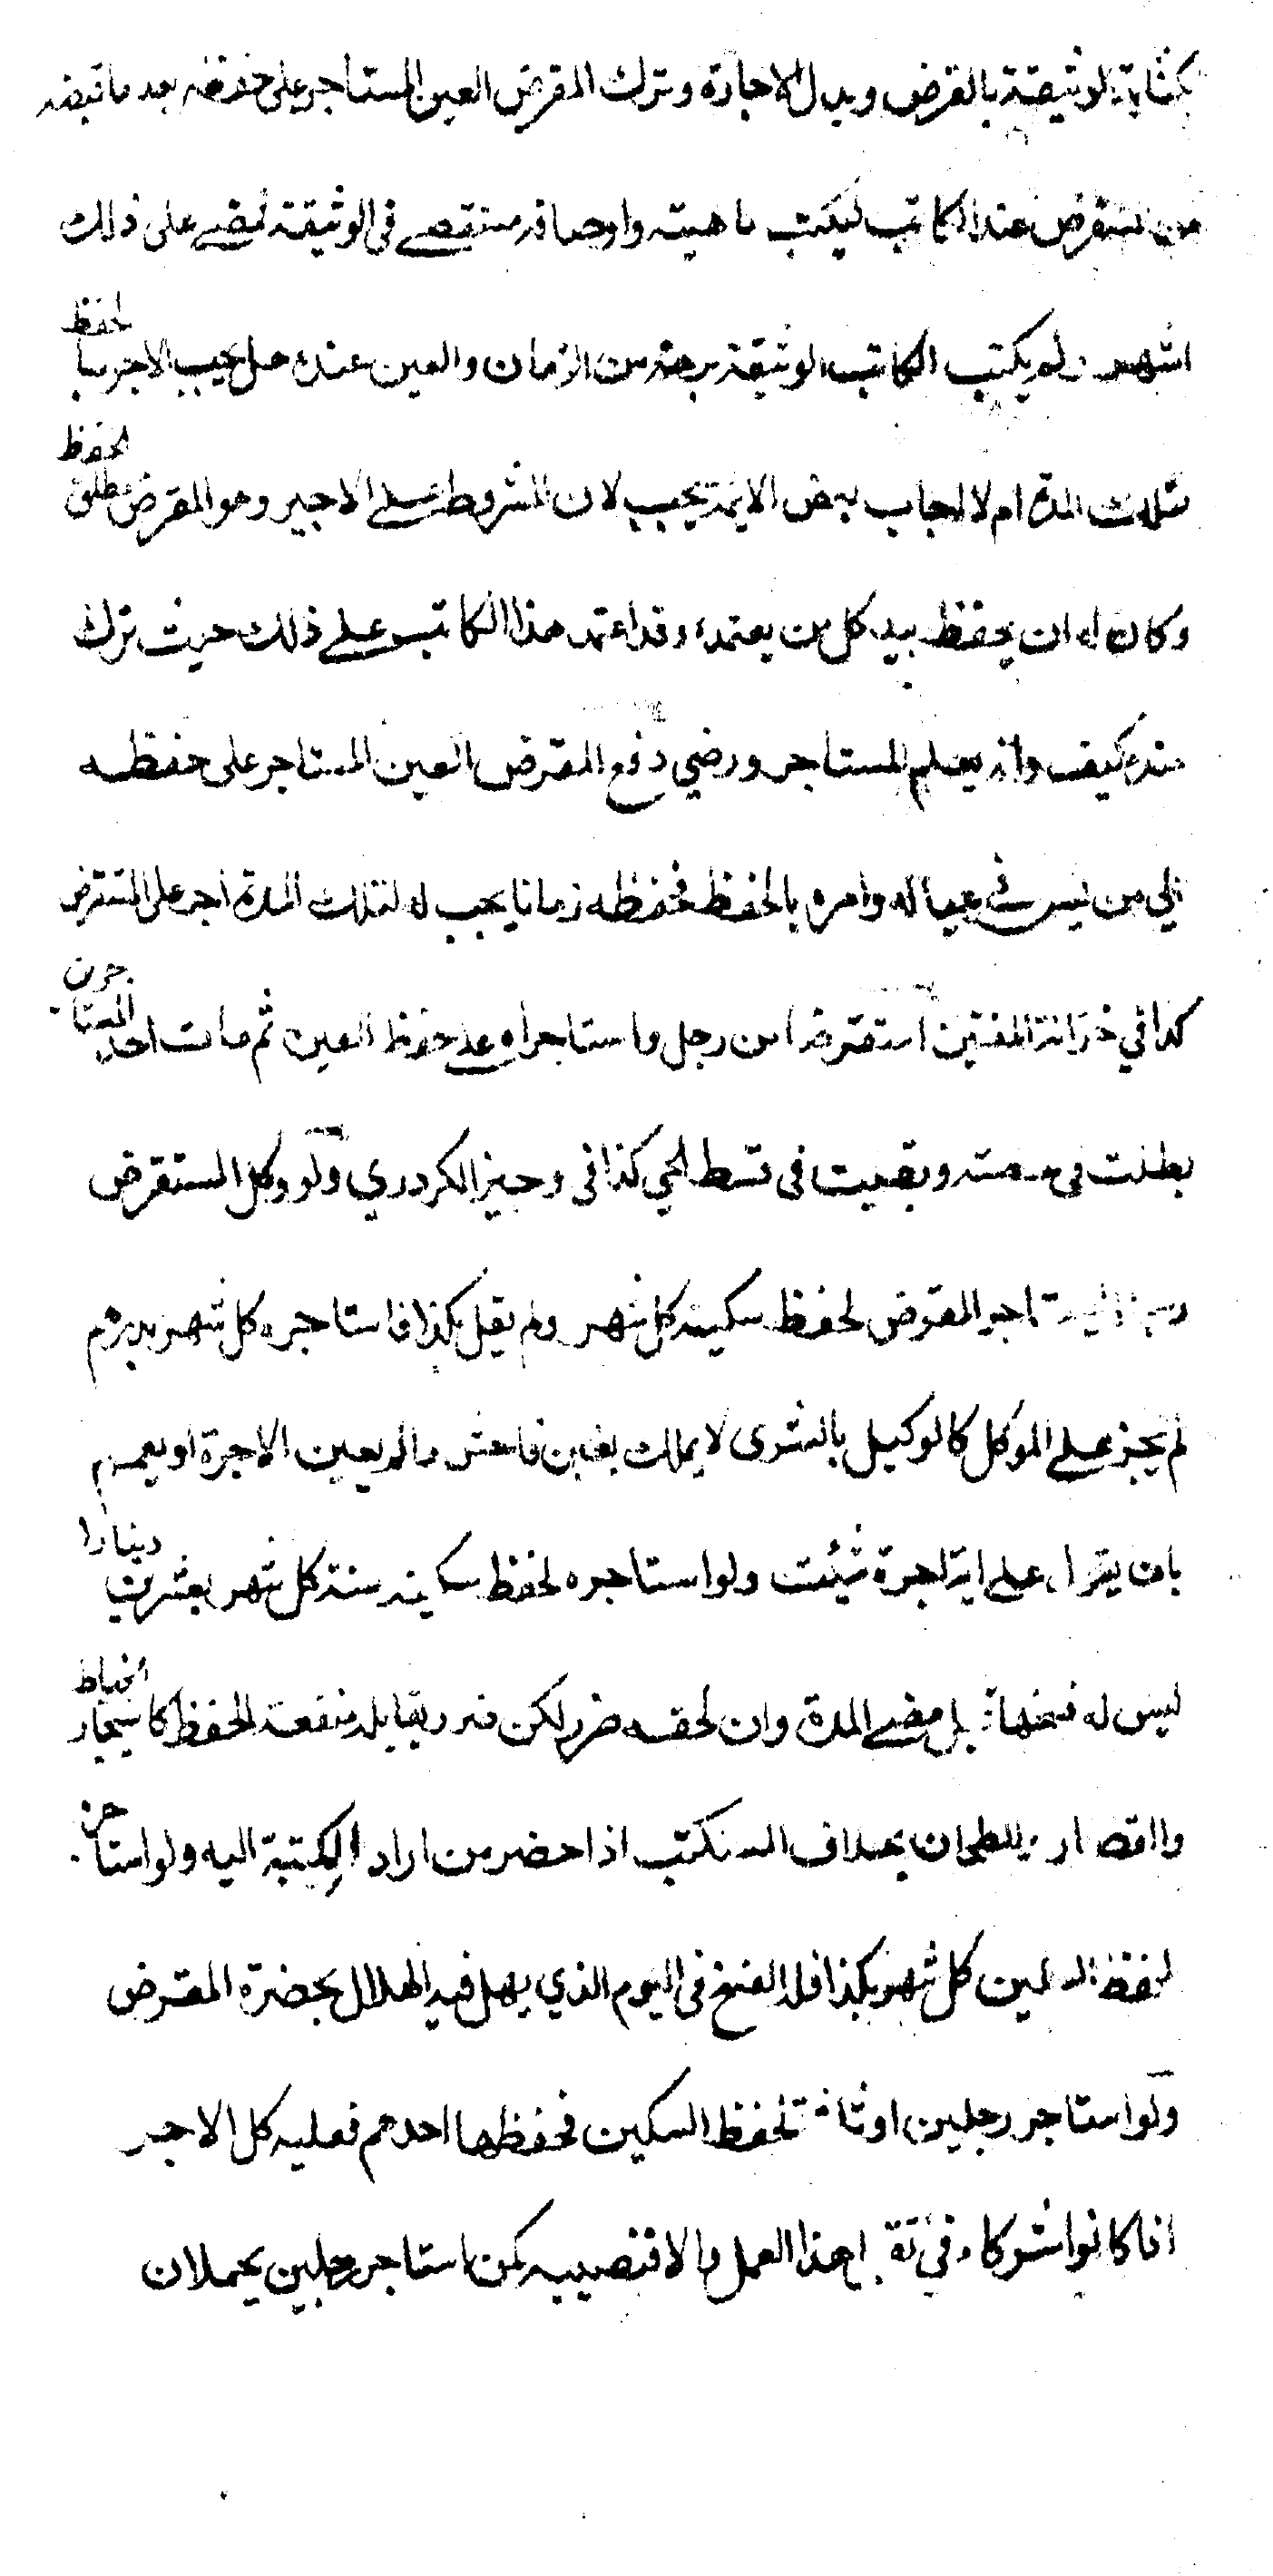 بكتابة الوثيقة بالقرض وبدل الاجارة وترك المقرض العين المستاجر على حفظه بعد ما قبضه
من المستقرض عند الكاتب ليكتب ماهيته واوصافه مستقصى في الوثيقة فمضى على ذلك
اشهر ولم يكتب الكاتب الوثيقة برهة من الزمان والعين عنده هل يجب الاجر بالحفظ
لتلك المدة ام لا اجاب بعض الايمة يجب لان المشروط على الاجير وهو المقرض مطلق الحفظ
وكان له ان يحفظ بيد كل من يعتمده وقد اعتمد هذا الكاتب على ذلك حيث ترك
عنده كيف وانه يعلم المستاجر ورضي دفع المقرض العين المستاجر على حفظه
الى من ليس في عياله وامره بالحفظ فحفظه زمانا يجب له لتلك المدة اجر على المستقرض
كذا في خزانة المفتين استقرضا من رجل واستاجراه على حفظ العين ثم مات احد المستاجرين
بطلت في حصته وبقيت في قسط الحي كذا في وجيز الكردري ولو وكل المستقرض
المقرض لحفظ سكينه كل شهر ولم يقل بكذا فاستاجره كل شهر بدرهم
لم يجز على الموكل كالوكيل بالشرى لا يملك بغبن فاحش ما لم يعين الاجرة او يعمم
بان يقول على اية اجرة شئت ولو استاجره لحفظ سكينه سنة كل شهر بعشرين دينارا
ليس له فسخها قبل مضى المدة وان لحقه ضرر لكن ضرر يقابله منفعة الحفظ كاستيجار الخياط
والقصار والطحان بخلاف المستكتب اذا حضر من اراد الكتبة اليه ولو استاجره
لحفظ السكين كل شهر بكذا فله الفسخ في اليوم الذي يهل فيه الهلال بحضرة المقرض
ولو استاجر رجلين او ثلاثة لحفظ السكين فحفظها احدهم فعليه كل الاجر
اذا كانوا شركاء في تقبل هذا العمل والا فنصيبه كمن استاجر رجلين يحملان